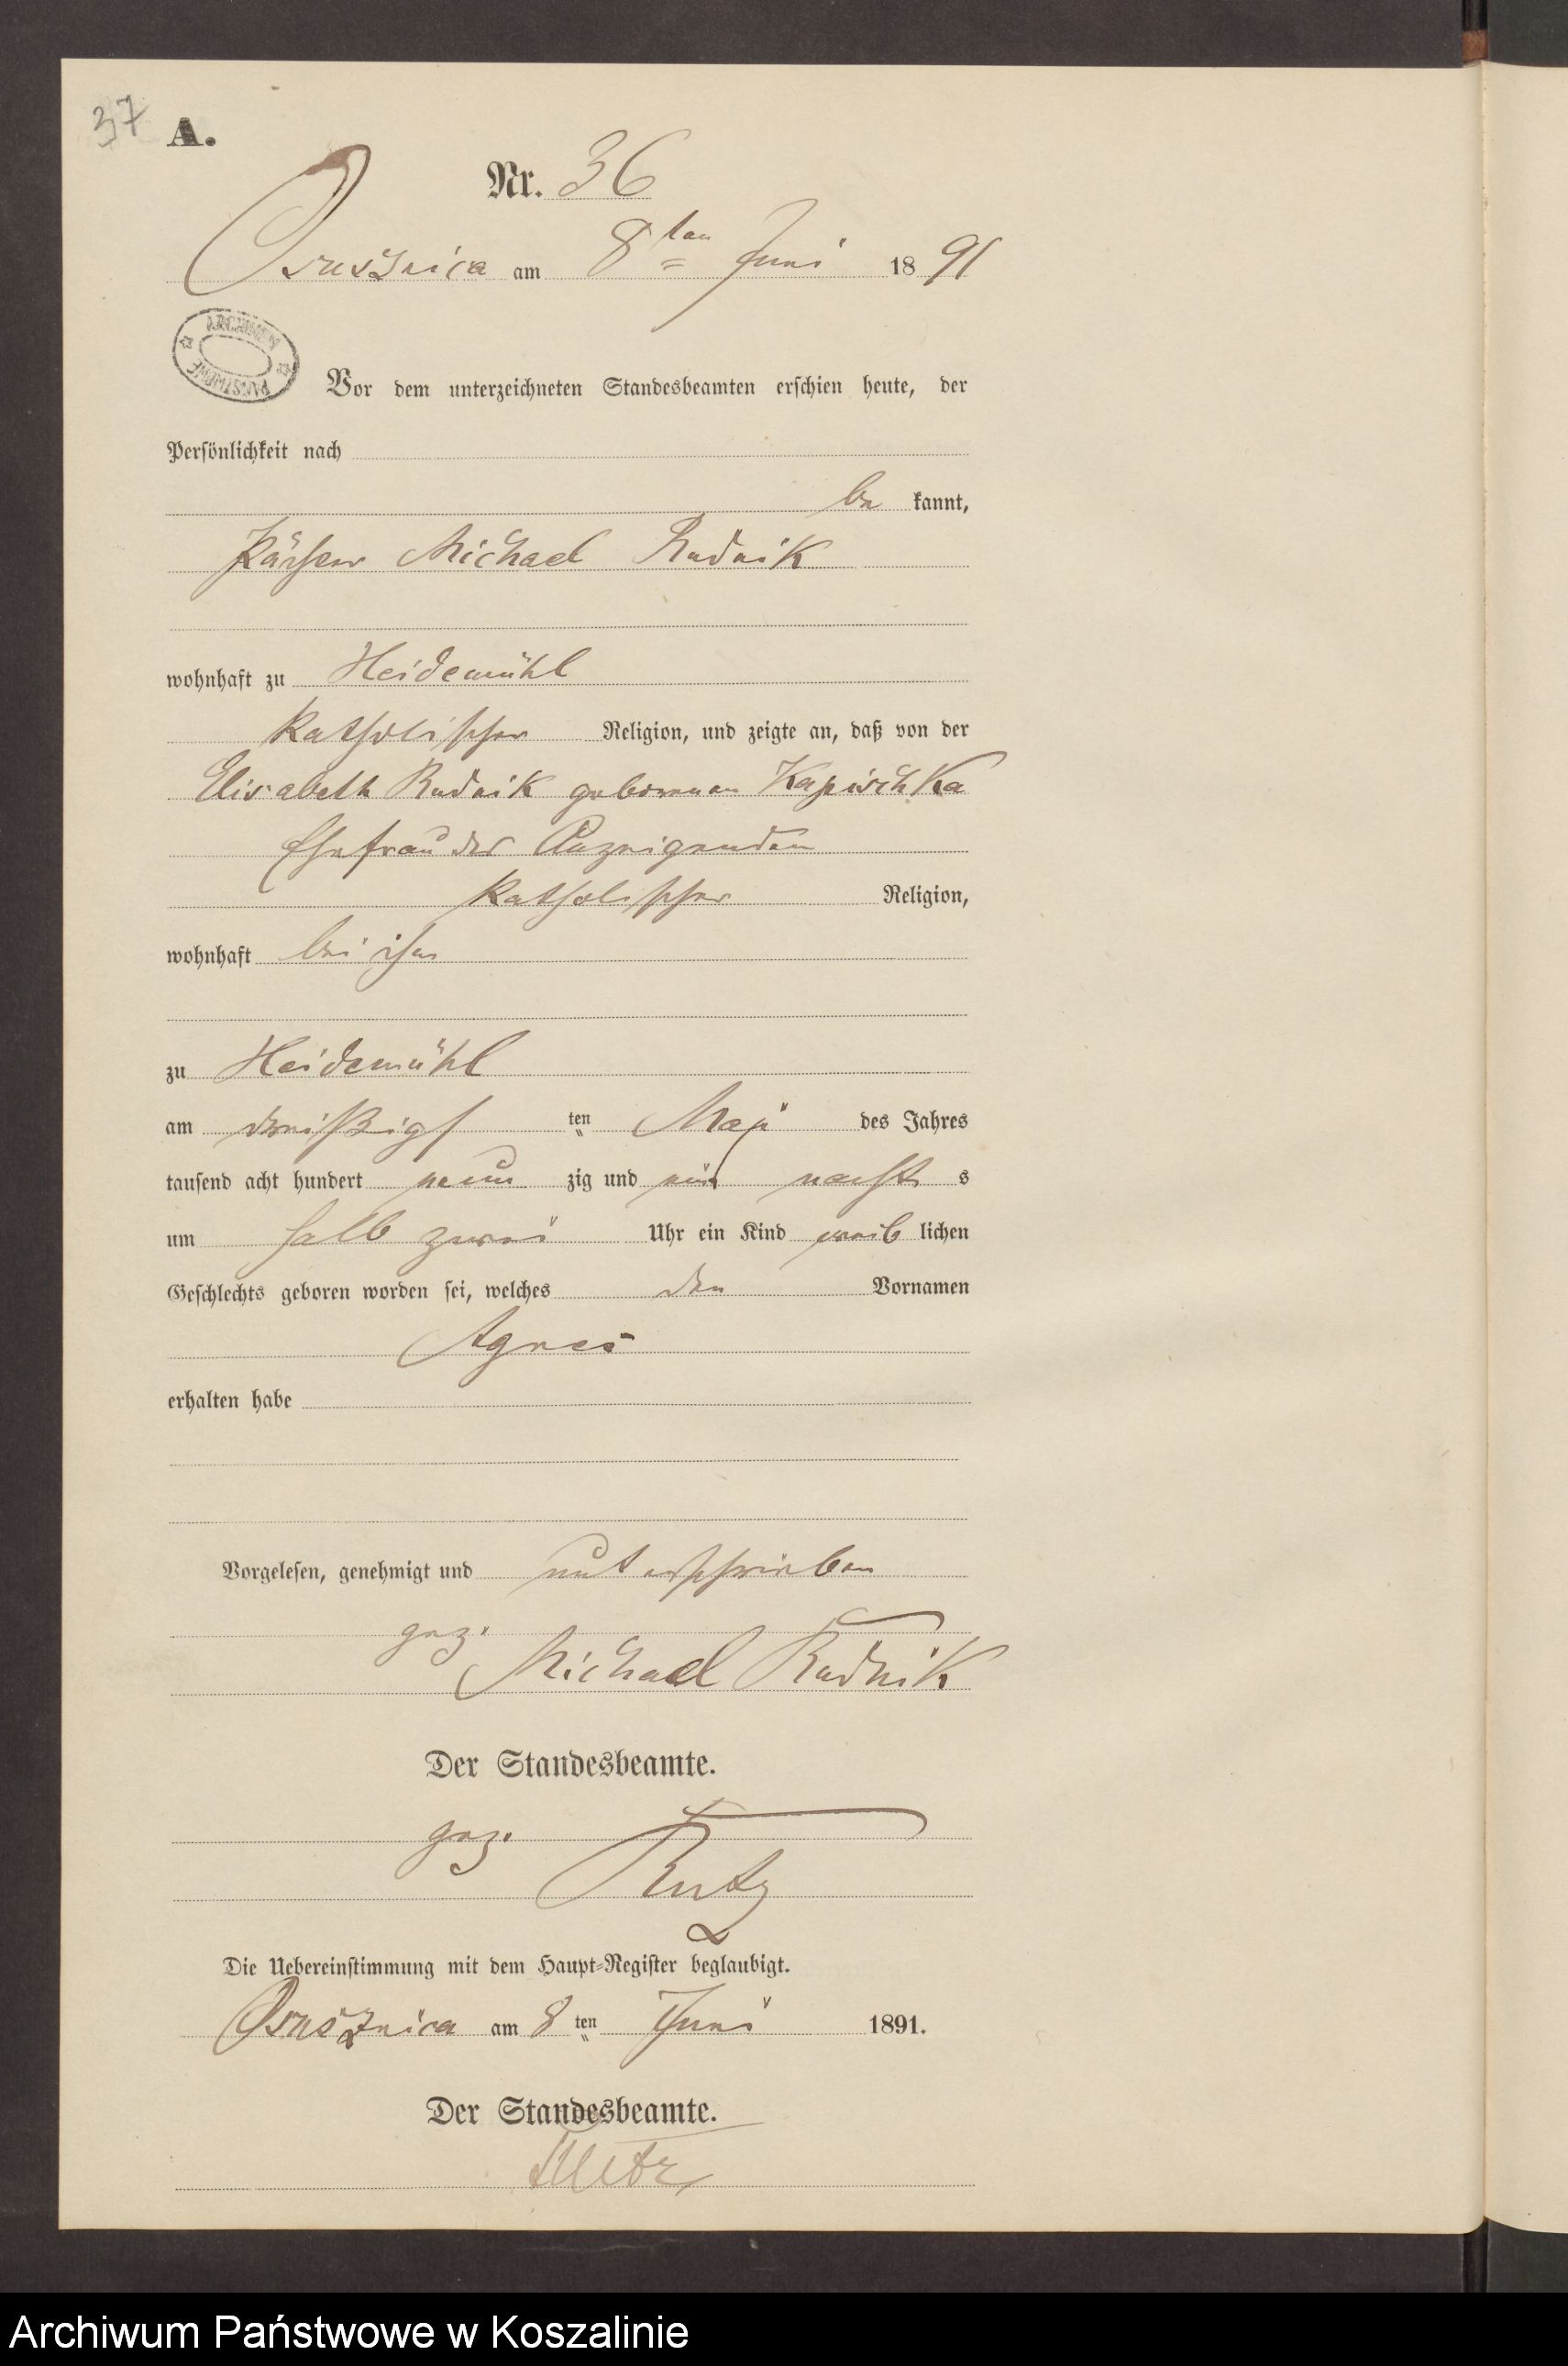 37 A.
Nr. 36
Ossusznica am 8ten Juni 1891
ARCHIWUM PAŃSTWOWE
Vor dem unterzeichneten Standesbeamten erschien heute, der
Persönlichkeit nach
be kannt,
Michael Rudnik
wohnhaft zu Heidemühl
katholischer Religion, und zeigte an, daß von der
Elisabeth Rudnik geborenen Kapischka
Ehefrau des Anzeigenden
katholischer Religion,
wohnhaft bei ihm
zu Heidemühl
am dreißigsten Mai des Jahres
tausend acht hundert neun zig und ein nachts
um halb zwei Uhr ein Kind weib lichen
Geschlechts geboren worden sei, welches den Vornamen
Agnes
erhalten habe
Vorgelesen, genehmigt und unterschrieben
gez.
Michael Rudnik
Der Standesbeamte.
gez.
Rutz
Die Uebereinstimmung mit dem Haupt-Register beglaubigt.
Ossusznica am 8 ten Juni 1891.
Der Standesbeamte.
Rutz
Archiwum Państwowe w Koszalinie